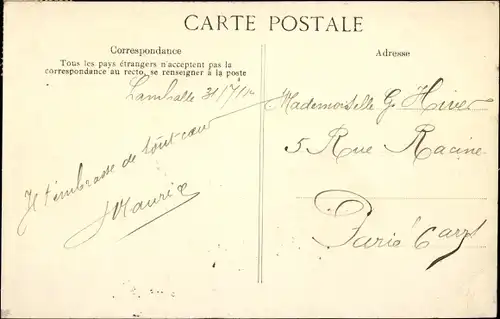 CARTE POSTALE
Correspondance
Tous les pays étrangers n'acceptent pas la
correspondance au recto, se renseigner à la poste
Lamballe 31/7/12
Je t'embrasse de tout cœur
Maurice
Adresse
Mademoiselle G. Hiver
5 Rue Racine
Paris